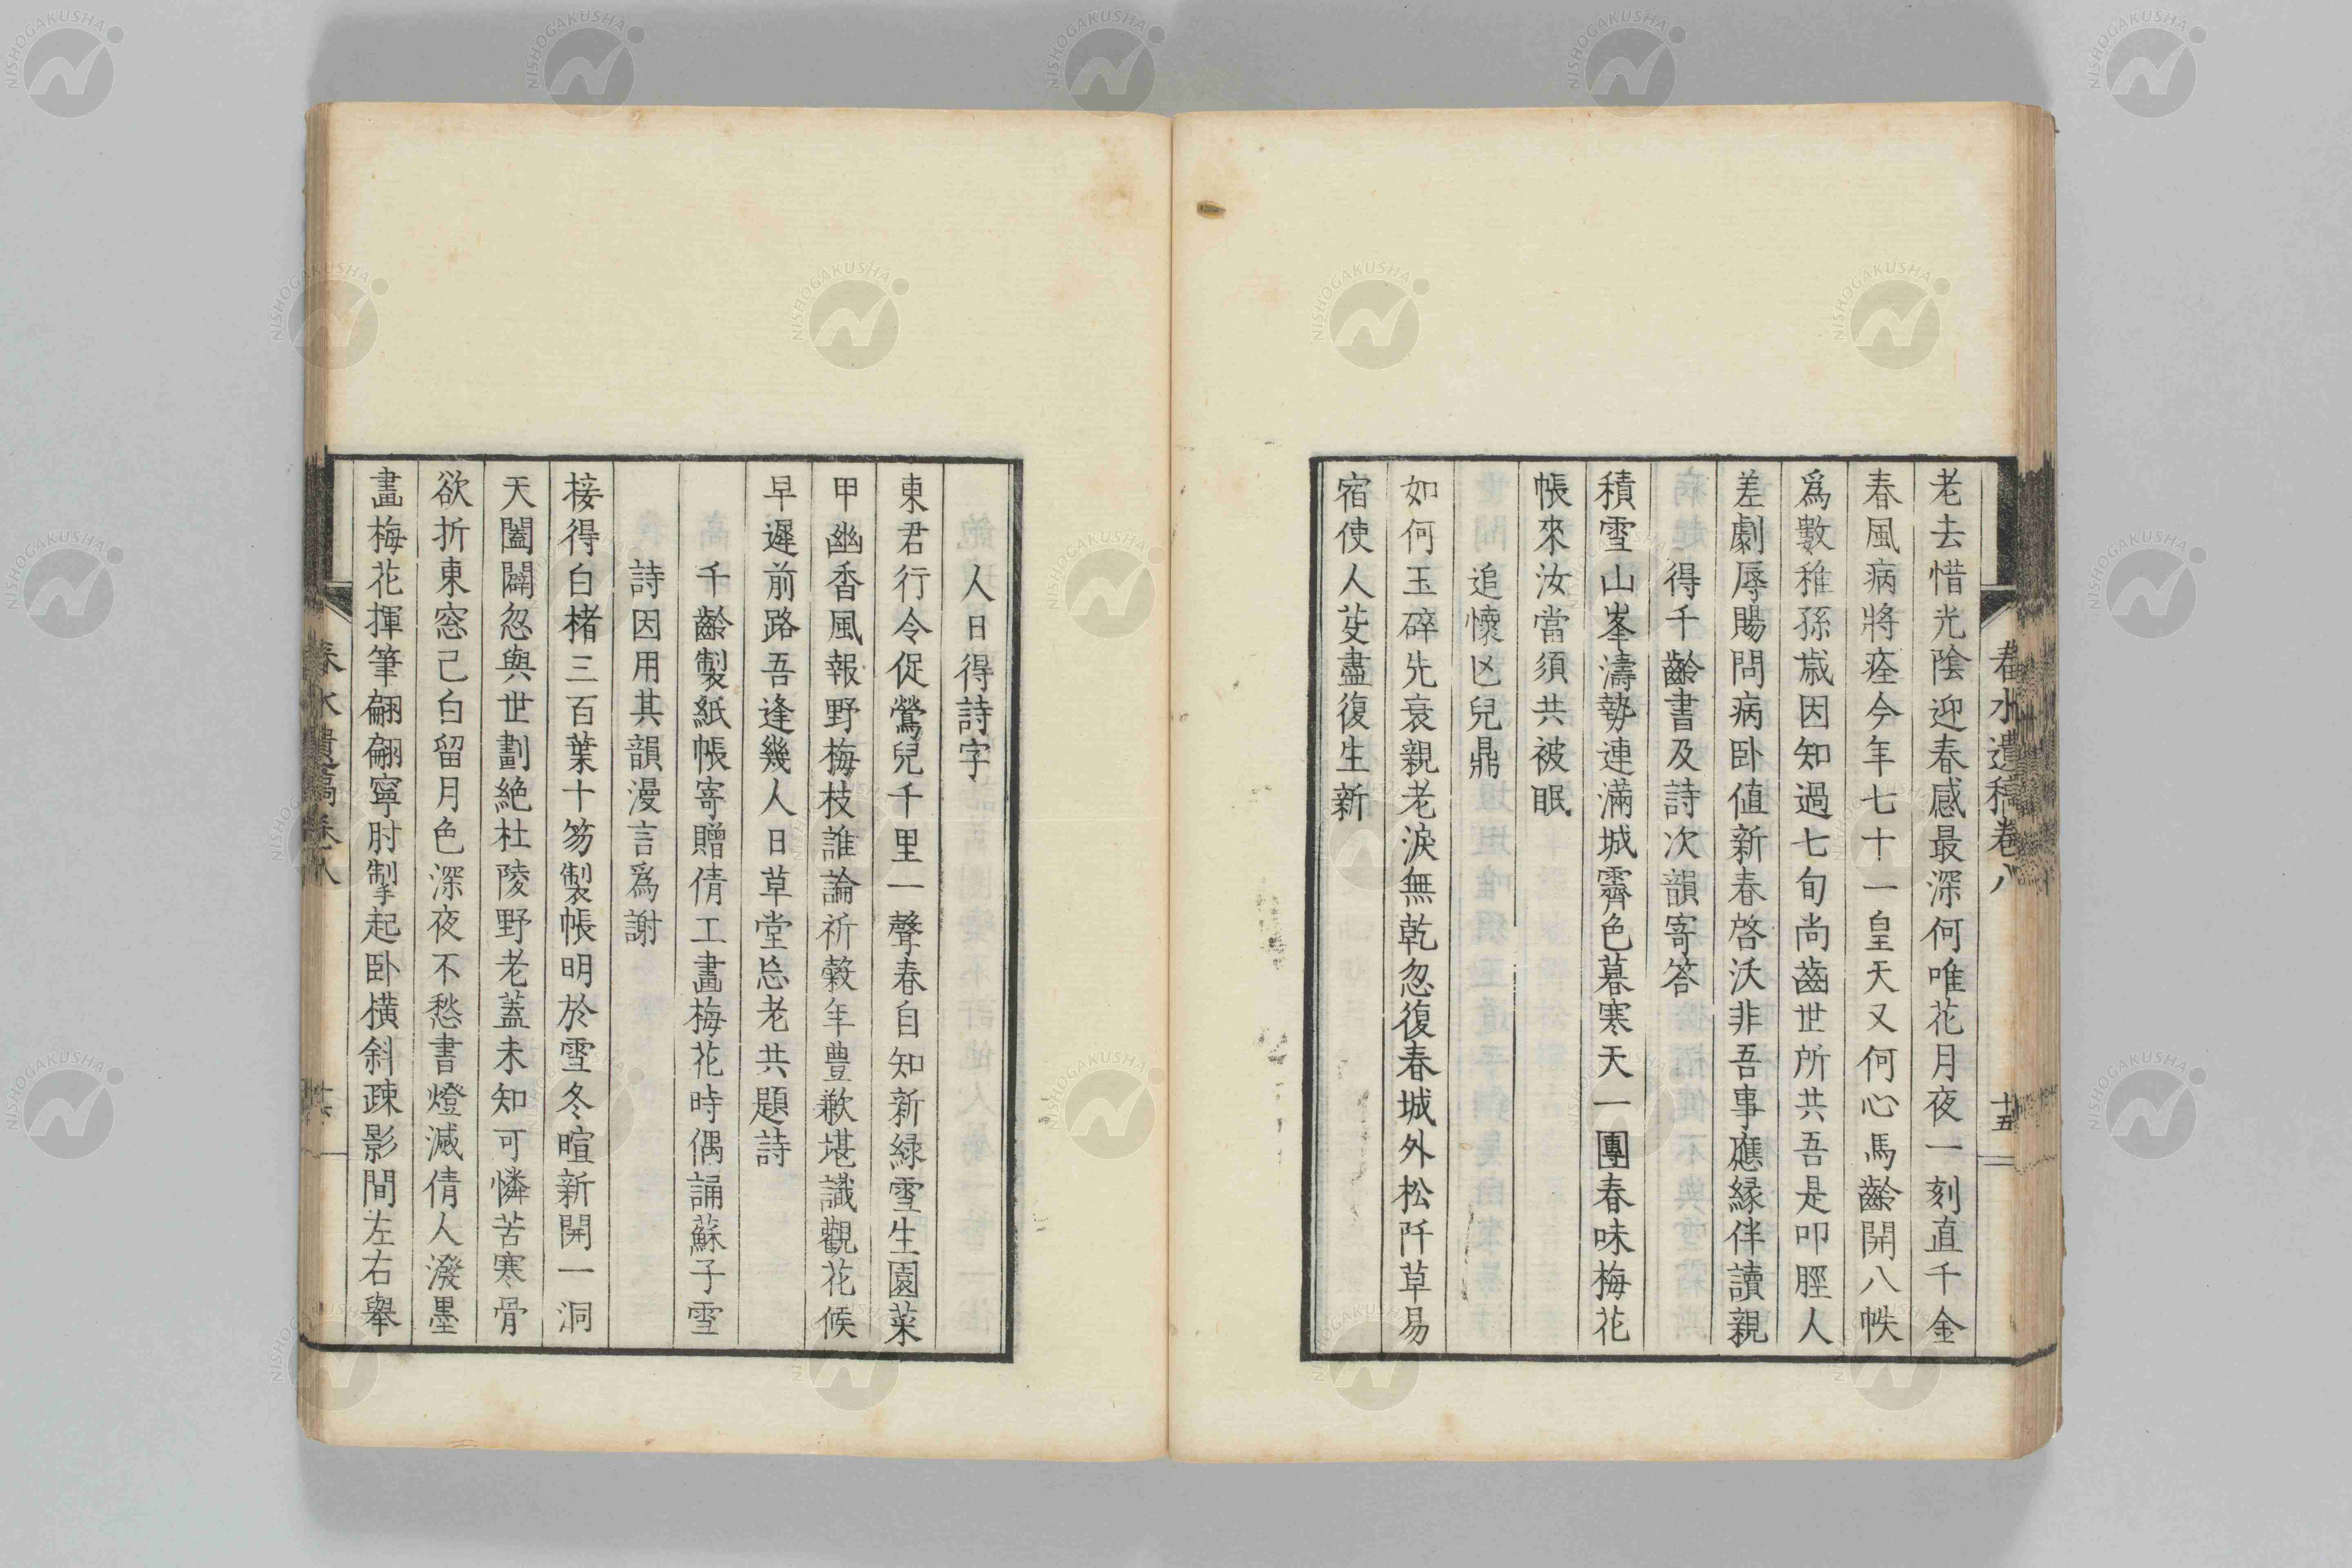 春水遺稿卷八
十五
老去惜光陰迎春感最深何唯花月夜一刻直千金
春風病將痊今年七十一皇天又何心馬齡開八帙
爲數稚孫歳因知過七旬尚齒世所共吾是叩脛人
差劇辱賜問病卧値新春啓沃非吾事應縁伴讀親
得千齡書及詩次韻寄答
積雪山峯濤勢連滿城霽色暮寒天一團春味梅花
帳來汝當須共被眠
追懷凶兒鼎
如何玉碎先衰親老淚無乾忽復春城外松阡草易
宿使人芟盡復生新
人日得詩字
東君行令促鶯兒千里一聲春自知新緑雪生園菜
甲幽香風報野梅枝誰論祈穀年豊歉堪識觀花候
早遲前路吾逢幾人日草堂忘老共題詩
千齡製紙帳寄贈倩工畫梅花時偶誦蘇子雪
詩因用其韻漫言爲謝
接得白楮三百葉十笏製帳明於雪冬暄新開一洞
天闔闢忽與世劃絶杜陵野老蓋未知可憐苦寒骨
欲折東窓已白留月色深夜不愁書燈滅倩人潑墨
畫梅花揮筆翩翩寧肘掣起卧橫斜疎影間左右擧
春水遺稿卷八
十六